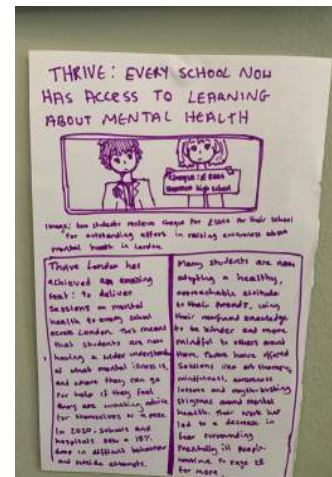 THRIVE: EVERY SCHOOL NOW
HAS ACCESS TO LEARNING
ABOUT MENTAL HEALTH
Cheque: £
high school
Image: two students receive cheque for for their school
for outstanding effort in raising awareness about
mental health in London.
Thrive London has
achieved an amazing
feat: to deliver
Sessions on mental
health to every school
across London. This means
that students are now
having a wider understanding
of what mental illness is,
and where they can go
for help if they feel
they are
for themselves or a peer.
In 2020, schools and
hospitals saw a 18%
drop in difficult behaviour
and suicide attempts.
Many students are now
adopting a healthy,
approachable attitude
to their friends, using
their newfound knowledge
to be kinder and more
mindful to others around
them. Thrive have offered
Sessions like art therapy,
mindfulness, awareness
lessons and myth-bashing
stigmas around mental
health. Their work has
led to a decrease in
fear surrounding
mentally ill people.
continue to page
for more.